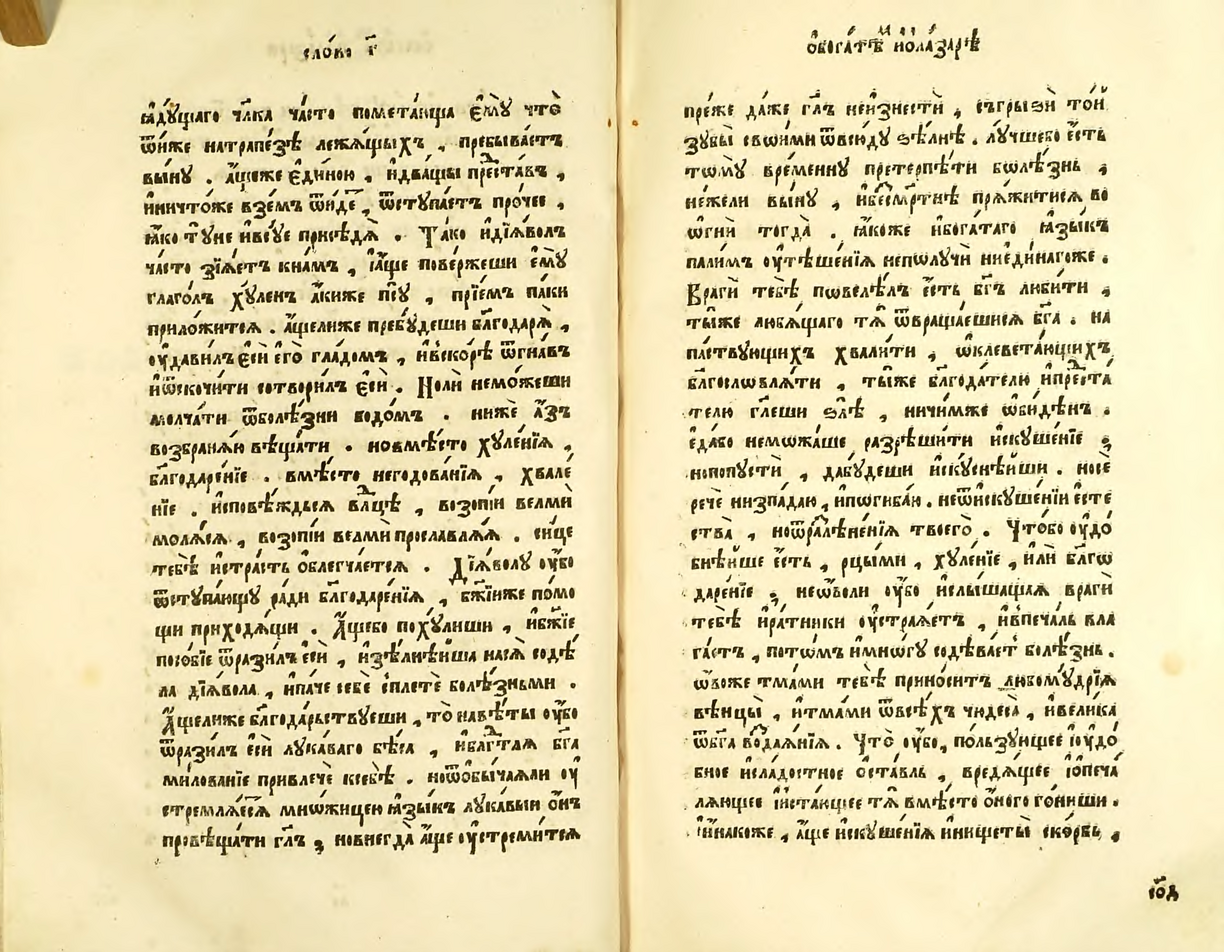 сло́во г҃
ꙗ҆дꙋ́щаго чл҃ка ча́сто помета́юща є҆мꙋ̀ что̀
ѿни́же натрапе́зѣ лежа́щыхъ , пребыва́етъ
вы́нꙋ . а҆́щеже є҆ди́ною , и҆два́щы преста́въ ,
и҆ничто́же взе́мъ ѿи́де , ѿстꙋпа́етъ про́чее ,
ꙗ҆́ко тꙋ́не и҆всꙋ́е присѣдѧ̀ . Та́ко и҆дїѧ́волъ
ча́сто зїѧ́етъ кна́мъ , і҆а҆́ще пове́ржеши є҆мꙋ̀
глаго́лъ хꙋ́ленъ а҆́киже псꙋ̀ , прїе́мъ па́ки
приложи́тсѧ . а҆́щелиже пребꙋ́деши бл҃годарѧ̀ ,
оу҆дави́лъ є҆сѝ є҆го̀ гла́домъ , и҆вско́рѣ ѿгна́въ
и҆ѿскочи́ти сотвори́лъ є҆сѝ . Но́ли немо́жеши
молча́ти ѿболѣ́зни водо́мъ . нижѐ а҆́зъ
возбранѧ́ю вѣща́ти . новмѣ́сто хꙋле́нїѧ ,
бл҃годаре́нїе . вмѣ́сто негодова́нїѧ , хвале́
нїе . и҆сповѣ́ждьсѧ вл҃цѣ , возопі́и велмѝ
молѧ́сѧ , возопі́и велмѝ прославлѧ́ѧ . си́це
тебѣ̀ и҆стра́сть облегча́етсѧ . Дїѧ́волꙋ оу҆́бо
ѿстꙋпа́ющꙋ ра́ди бл҃годаре́нїѧ , бж҃їиже по́мо
щи приходѧ́щи . А҆́щебо похꙋ́лиши , и҆бж҃їе
посо́бїе ѿрази́лъ є҆сѝ , и҆зѣлнѣ́йша насѧ̀ содѣ́
ла дїѧ́вола , и҆па́че себѐ сплетѐ болѣ́зньми .
А҆́щелиже бл҃года́рьствꙋеши , то̀ навѣ́ты оу҆́бо
ѿрази́лъ є҆сѝ лꙋка́ваго бѣ́са , и҆бл҃га́гѡ бг҃а
милова́нїе привлечѐ ксебѣ̀ . ноѿобы́чаѧ ми оу҆
стремлѧ́есѧ мно́жицею ꙗ҆зы́къ лꙋка́выи о҆́нъ
провѣща́ти гл҃ъ , новнегда̀ а҆́ще оу҆стреми́тсѧ
обога́тѣ и҆ола́зарѣ
пре́же да́же гл҃ъ неи҆знестѝ , съгрызѝ то́й
зꙋбы̀ свои́ми ѿвсю́дꙋ ѕѣ́лнѣ . лꙋ́чшебо є҆́сть
томꙋ̀ вре́меннꙋ претерпѣ́ти болѣ́знь ,
не́жели вы́нꙋ , и҆бесме́ртнѣ прѧ́житисѧ во
ѡ҆гнѝ тогда̀ . ꙗ҆́коже и҆бога́таго ꙗ҆зы́къ
пали́мъ оу҆тѣше́нїѧ непѡлꙋчѝ ниеди́нагоже .
Врагѝ тебѣ̀ повелѣ́лъ є҆́сть бг҃ъ люби́ти ,
ты́же любѧ́щаго тѧ̀ ѿвраща́ешисѧ бг҃а . на
па́ствꙋющихъ хвали́ти , ѡ҆клевета́ющихъ
бл҃гословлѧ́ти , ты́же бл҃года́телю и҆преста́
телю гл҃еши ѕлѣ̀ , ничи́мже ѡ҆би́дѣнъ .
є҆да́бо немо́жаше разрѣши́ти и҆скꙋше́нїе ,
нопопꙋстѝ , дабꙋ́деши и҆скꙋснѣ́йши . носѐ
речѐ низпа́даю , и҆погиба́ю . неѿи҆скꙋше́нїи є҆сте
ства̀ , ноѿразлѣне́нїѧ твоего̀ . Что́бо оу҆до́
бнѣйше є҆́сть , рцы́ми , хꙋле́нїе , и҆лѝ бл҃го
даре́нїе , неѡ҆́воли оу҆́бо и҆слы́шащаѧ врагѝ
тебѣ̀ и҆ра́тники оу҆страѧ́етъ , и҆впеча́ль вла
га́етъ , пото́мъ и҆мно́гꙋ содѣва́етъ болѣ́знь .
ѡ҆́воже тма́ми тебѣ̀ прино́ситъ любомꙋ́дрїѧ
вѣнцы̀ , и҆тма́ми ѿвсѣ́хъ чюдеса̀ , и҆вели́ка
ѿбг҃а воздаѧ́нїѧ . Что̀ оу҆́бо , по́льзꙋющее і҆оу҆до́
бное и҆сла́достное оста́вль , вредѧ́щее і҆опеча́
лѧющее і҆иста́ющее тѧ̀ вмѣ́сто о҆́ного го́ниши .
и҆и҆на́коже , а҆́ще и҆скꙋше́нїѧ и҆нищеты̀ ско́рбь ,
і҆о҆д